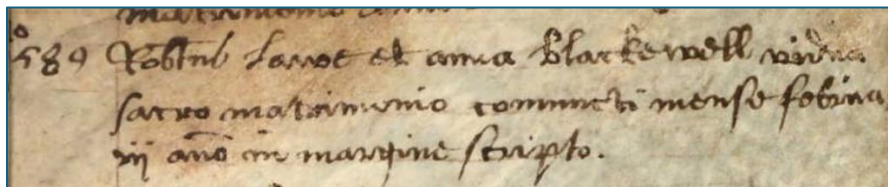 matrimonio
1589 Robtus Lawe et anna Blackewell vidua
sacro matrimonio coniuncti mense februa
iij ano in margine scripto.